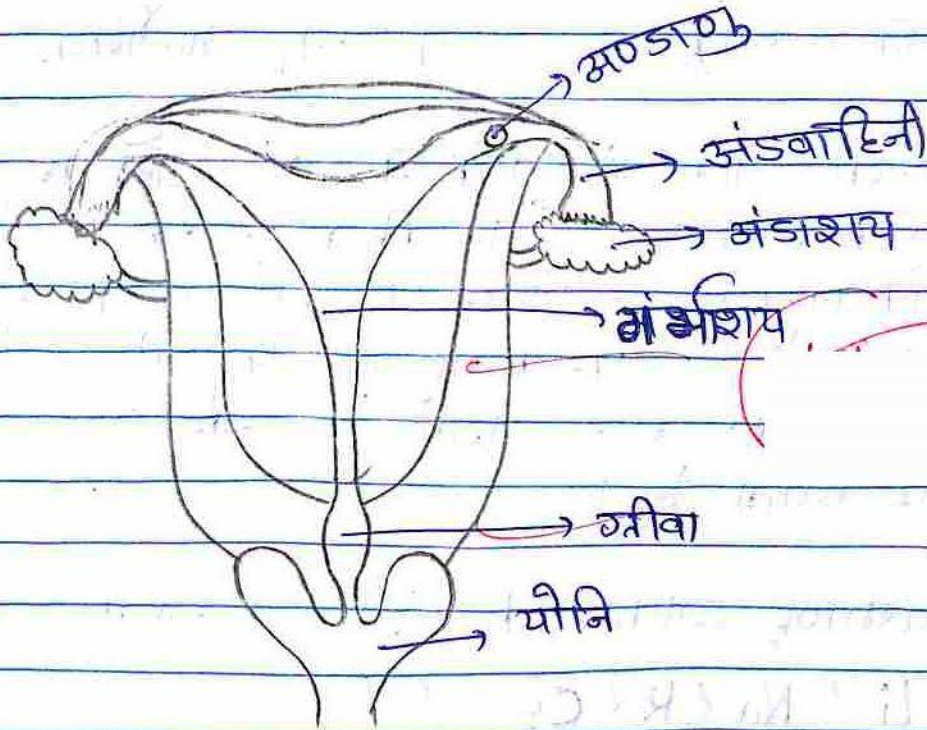 अण्डाणु
अंडवाहिनी
अंडाशय
गर्भाशय
ग्रीवा
योनि